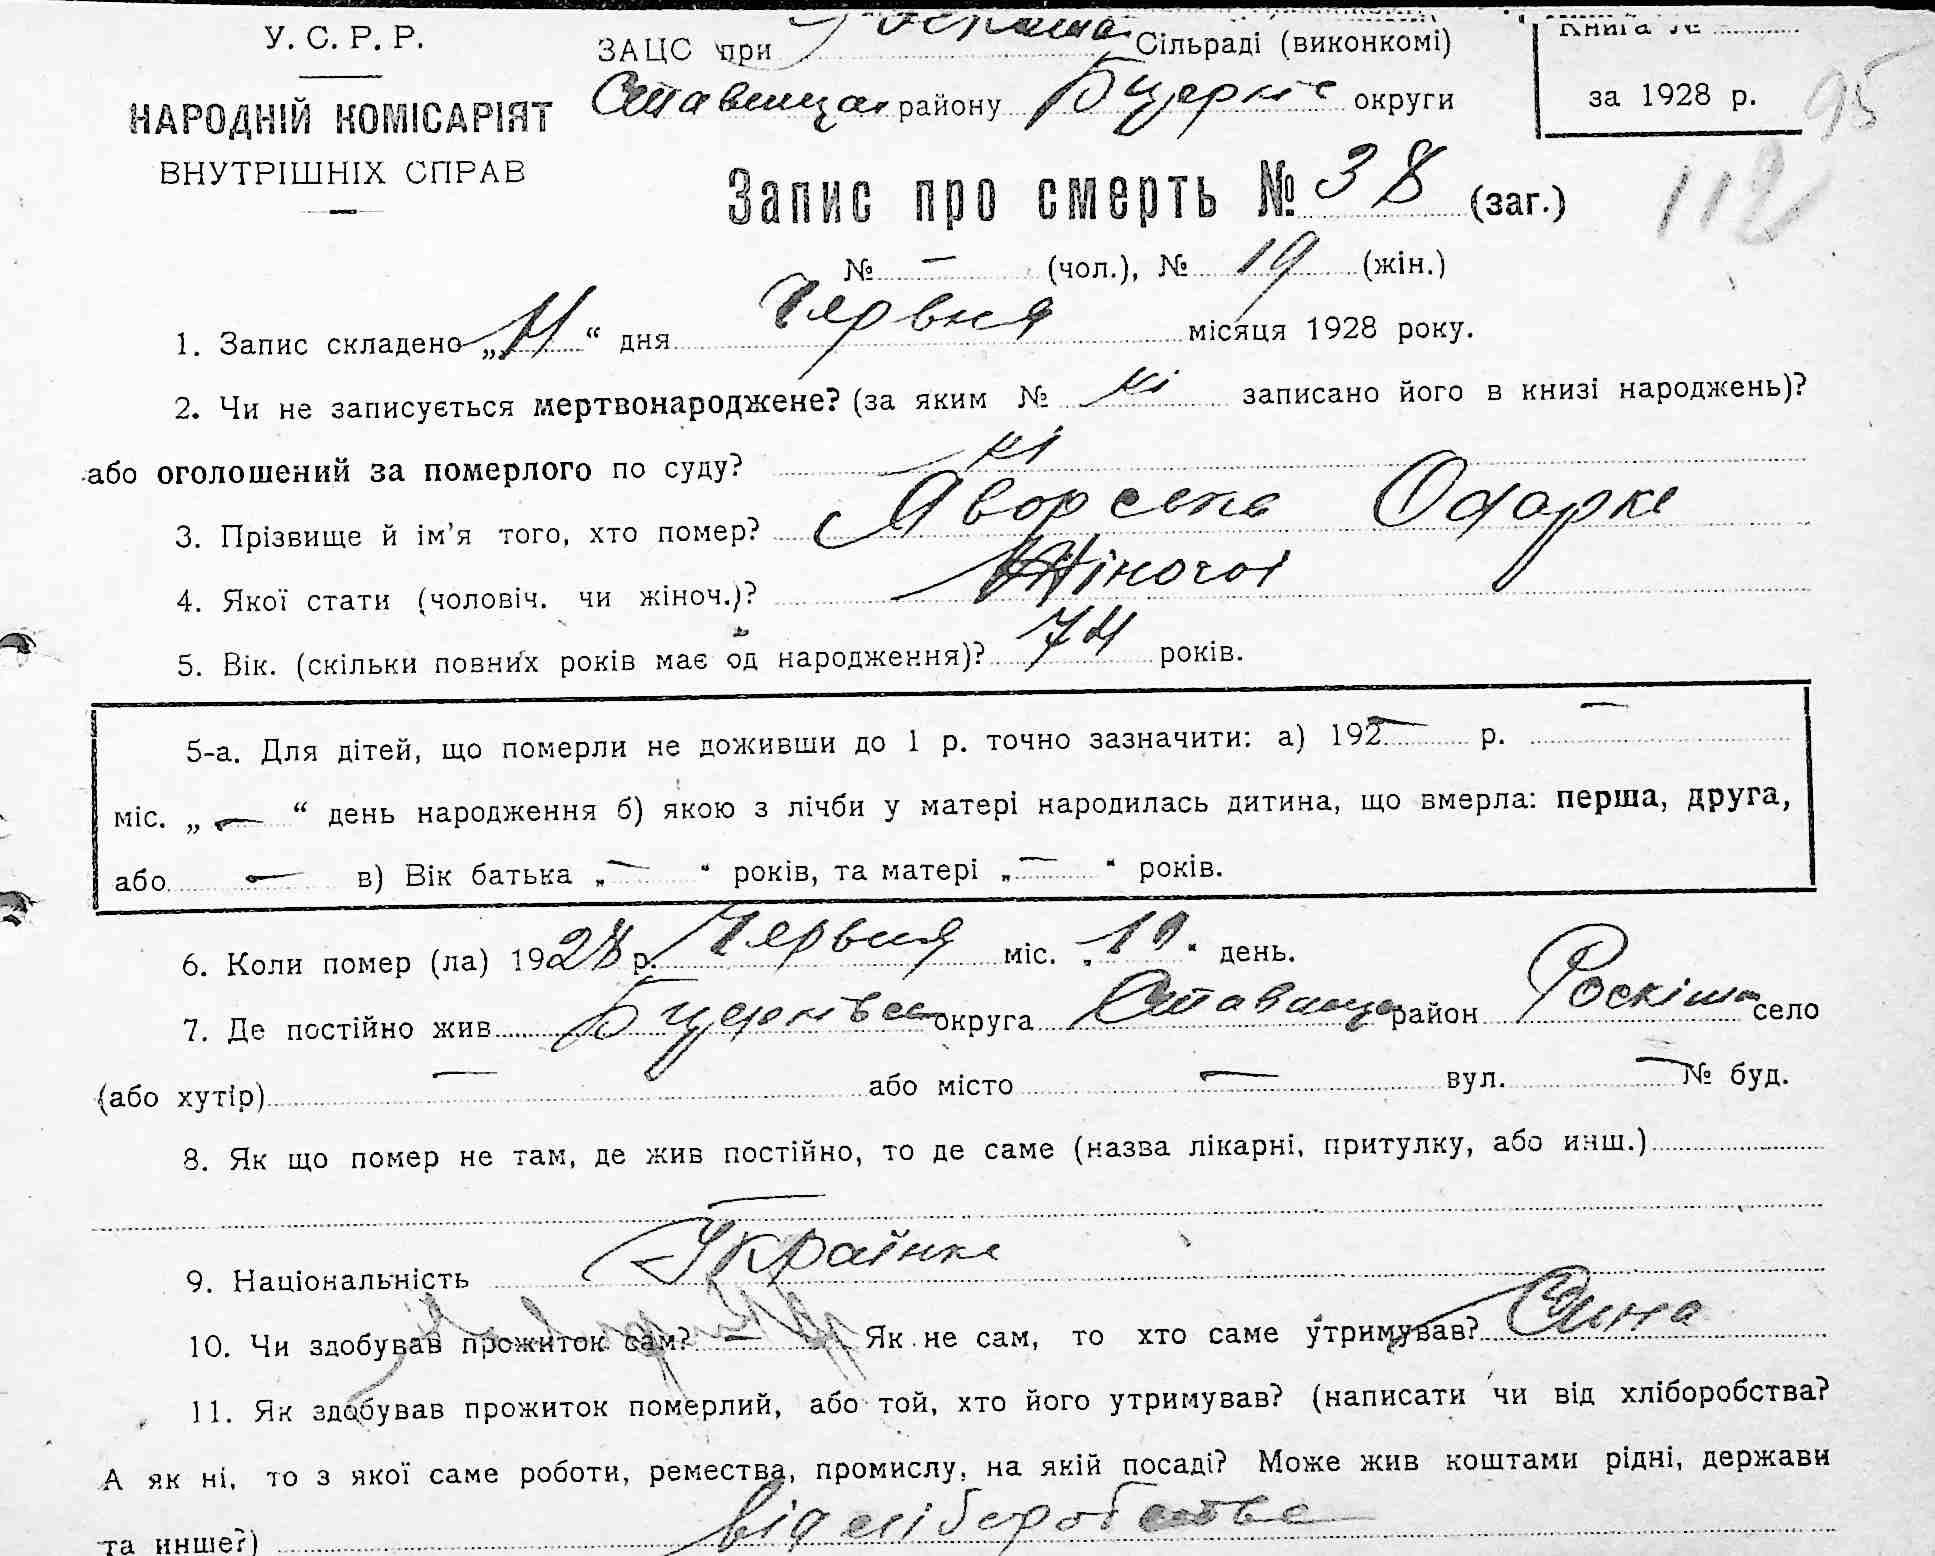 У. С. Р. Р.
НАРОДНІЙ КОМІСАРІЯТ
ВНУТРІШНІХ СПРАВ
ЗАЦС при Сільраді (виконкомі)
Ставищан району Бцеркіс округи
Книга №
за 1928 р.
95
112
Запис про смерть № 38 (заг.)
№ — (чол.), № 19 (жін.)
1. Запис складено „11“ дня Червня місяця 1928 року.
2. Чи не записується мертвонароджене? (за яким № ні записано його в книзі народжень)?
або оголошений за померлого по суду? ні
3. Прізвище й ім’я того, хто помер? Яворська Одарка
4. Якої стати (чоловіч. чи жіноч.)? Жіночоі
5. Вік. (скільки повних років має од народження)? 74 років.
5-а. Для дітей, що померли не доживши до 1 р. точно зазначити: а) 192— р. —
міс. „—“ день народження б) якою з лічби у матері народилась дитина, що вмерла: перша, друга,
або — в) Вік батька „—“ років, та матері „—“ років.
6. Коли помер (ла) 1928 р. Червня міс. „10“ день.
7. Де постійно жив Бцерківс округа Ставищ район Роскішна село
(або хутір) — або місто — вул. — № буд.
8. Як що помер не там, де жив постійно, то де саме (назва лікарні, притулку, або инш.)
—
9. Національність Українка
10. Чи здобував прожиток сам? — Як не сам, то хто саме утримував? Сина
11. Як здобував прожиток померлий, або той, хто його утримував? (написати чи від хліборобства?
А як ні, то з якої саме роботи, ремества, промислу, на якій посаді? Може жив коштами рідні, держави
та инше?) від хліборобства